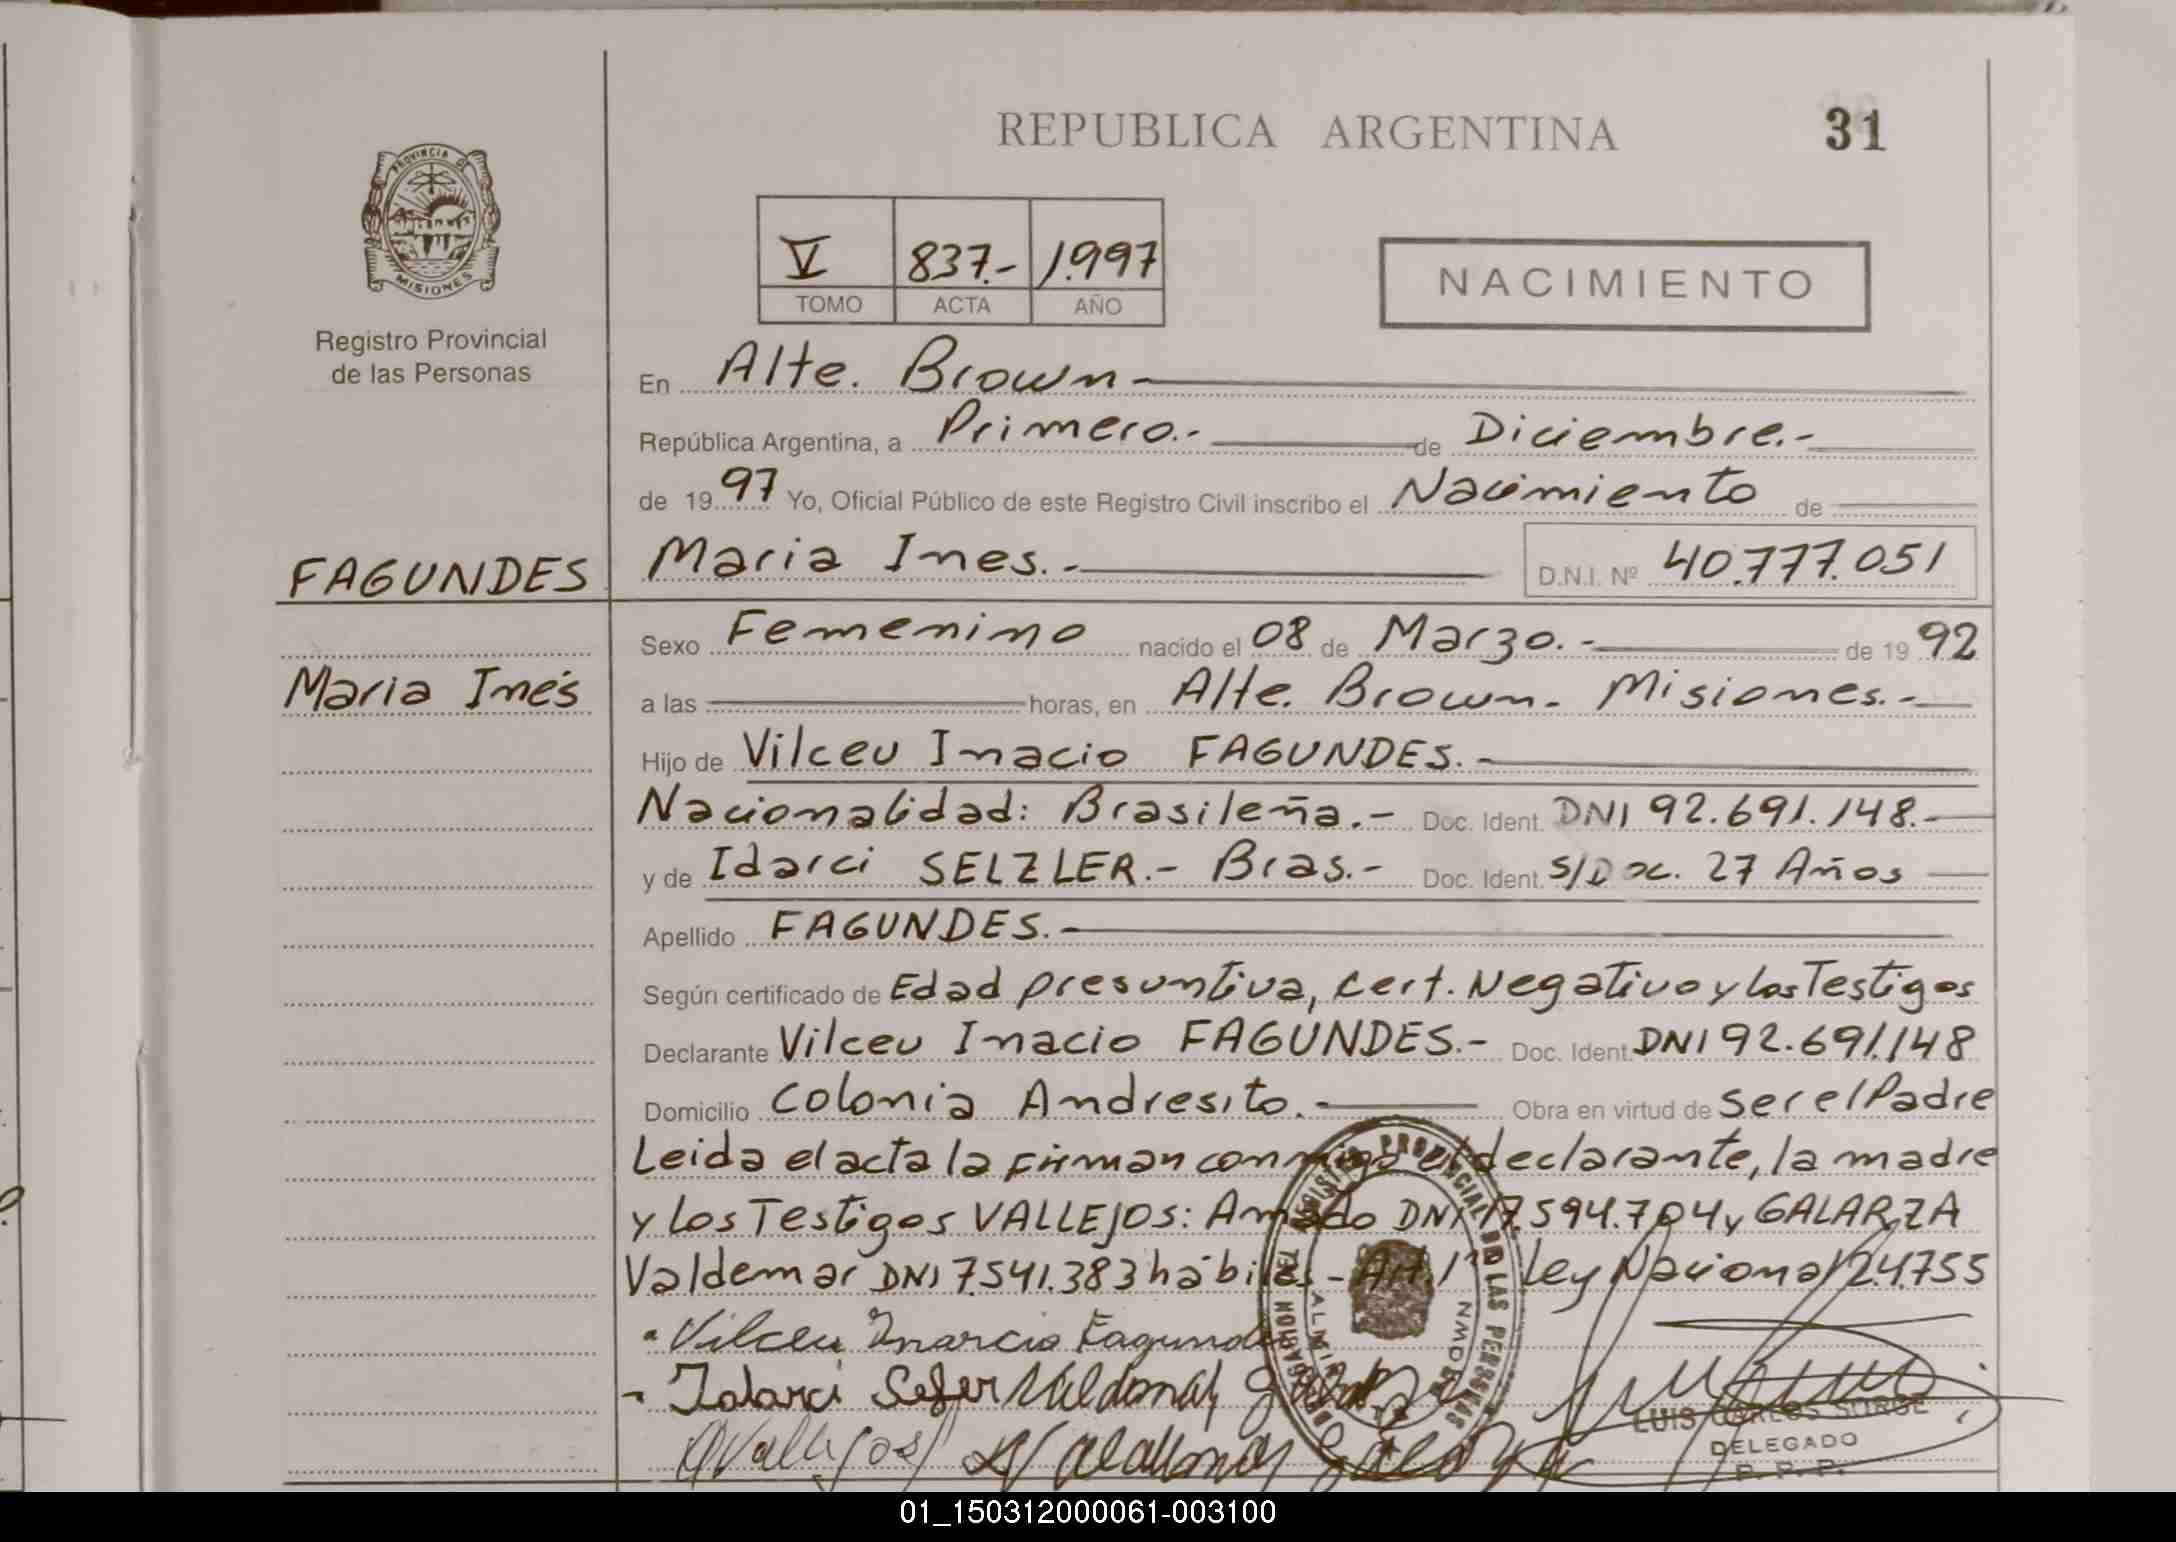 REPUBLICA ARGENTINA
31
PROVINCIA DE
MISIONES
Registro Provincial
de las Personas
V 837.- 1.997
TOMO ACTA AÑO
NACIMIENTO
En Alte. Brown-
República Argentina, a Primero.- de Diciembre.-
de 1997 Yo, Oficial Público de este Registro Civil inscribo el Nacimiento de
FAGUNDES Maria Ines.- D.N.I. Nº 40.777.051
Sexo Femenino nacido el 08 de Marzo.- de 1992
Maria Inés
a las horas, en Alte. Brown- Misiones.-
Hijo de Vilceu Inacio FAGUNDES.-
Nacionalidad: Brasileña.- Doc. Ident. DNI 92.691.148.-
y de Idarci SELZLER.- Bras.- Doc. Ident. S/Doc. 27 Años
Apellido FAGUNDES.-
Según certificado de Edad presuntiva, cert. Negativo y los Testigos
Declarante Vilceu Inacio FAGUNDES.- Doc. Ident. DNI 92.691.148
Domicilio Colonia Andresito.- Obra en virtud de ser el Padre
Leida el acta la firman conmigo el declarante, la madre
y los Testigos VALLEJOS: Amado DNI 17.594.704 y GALARZA
Valdemar DNI 7.541.383 hábiles - Art. 1º Ley Nacional 24.755
Vilceu Inarcio Fagundes
Idarci
LUIS CARLOS SORGE
DELEGADO
R. P. P.
01_150312000061-003100